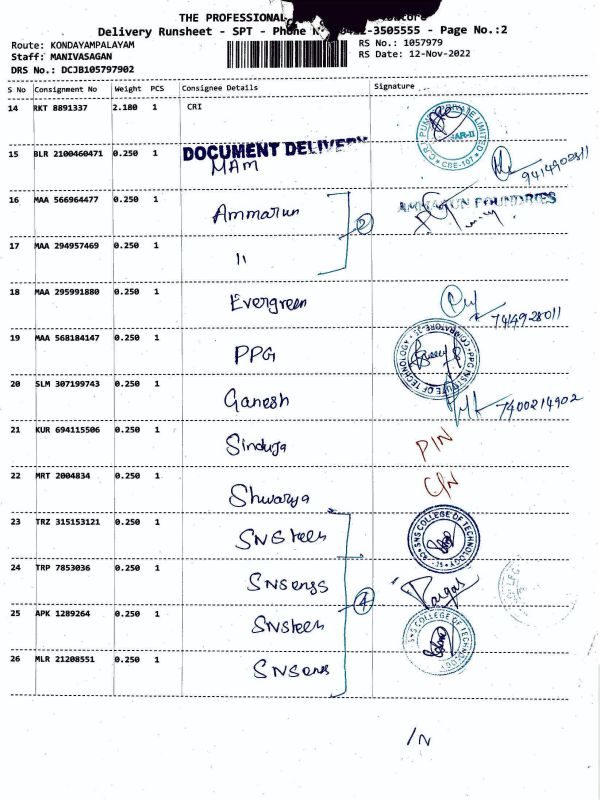 THE PROFESSIONAL
Delivery Runsheet - SPT - Phone -3505555 - Page No.:2
Route: KONDAYAMPALAYAM RS No.: 1057979
Staff: MANIVASAGAN RS Date: 12-Nov-2022
DRS No.: DCJB105797902
S No Consignment No Weight PCS Consignee Details Signature
14 RKT 8891337 2.180 1 CRI
15 BLR 2100460471 0.250 1 DOCUMENT DELIVERY
MAM
16 MAA 566964477 0.250 1 Ammarun AMMARUN FOUNDRIES
17 MAA 294957469 0.250 1 "
18 MAA 295991880 0.250 1 Evergreen
19 MAA 568184147 0.250 1 PPG PPG INSTITUTE OF TECHNOLOGY
20 SLM 307199743 0.250 1 Ganesh 7400214902
21 KUR 694115506 0.250 1 Sinduja PIN
22 MRT 2004834 0.250 1 Shwarya
23 TRZ 315153121 0.250 1 SNS SNS COLLEGE OF TECHNOLOGY
24 TRP 7853036 0.250 1 SNS
25 APK 1289264 0.250 1 SNS SNS COLLEGE OF TECHNOLOGY
26 MLR 21208551 0.250 1 SNS